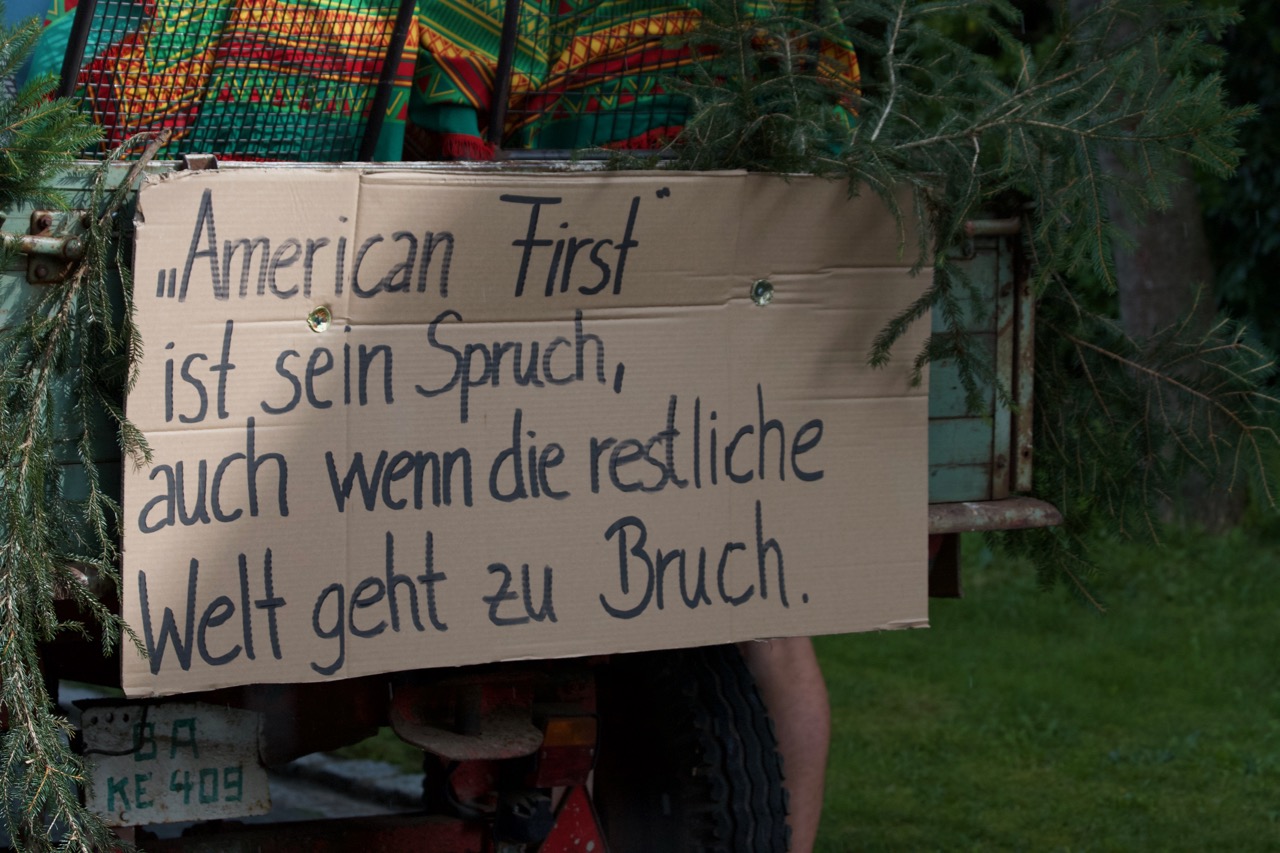 „American First“
ist sein Spruch,
auch wenn die restliche
Welt geht zu Bruch.
KE 409